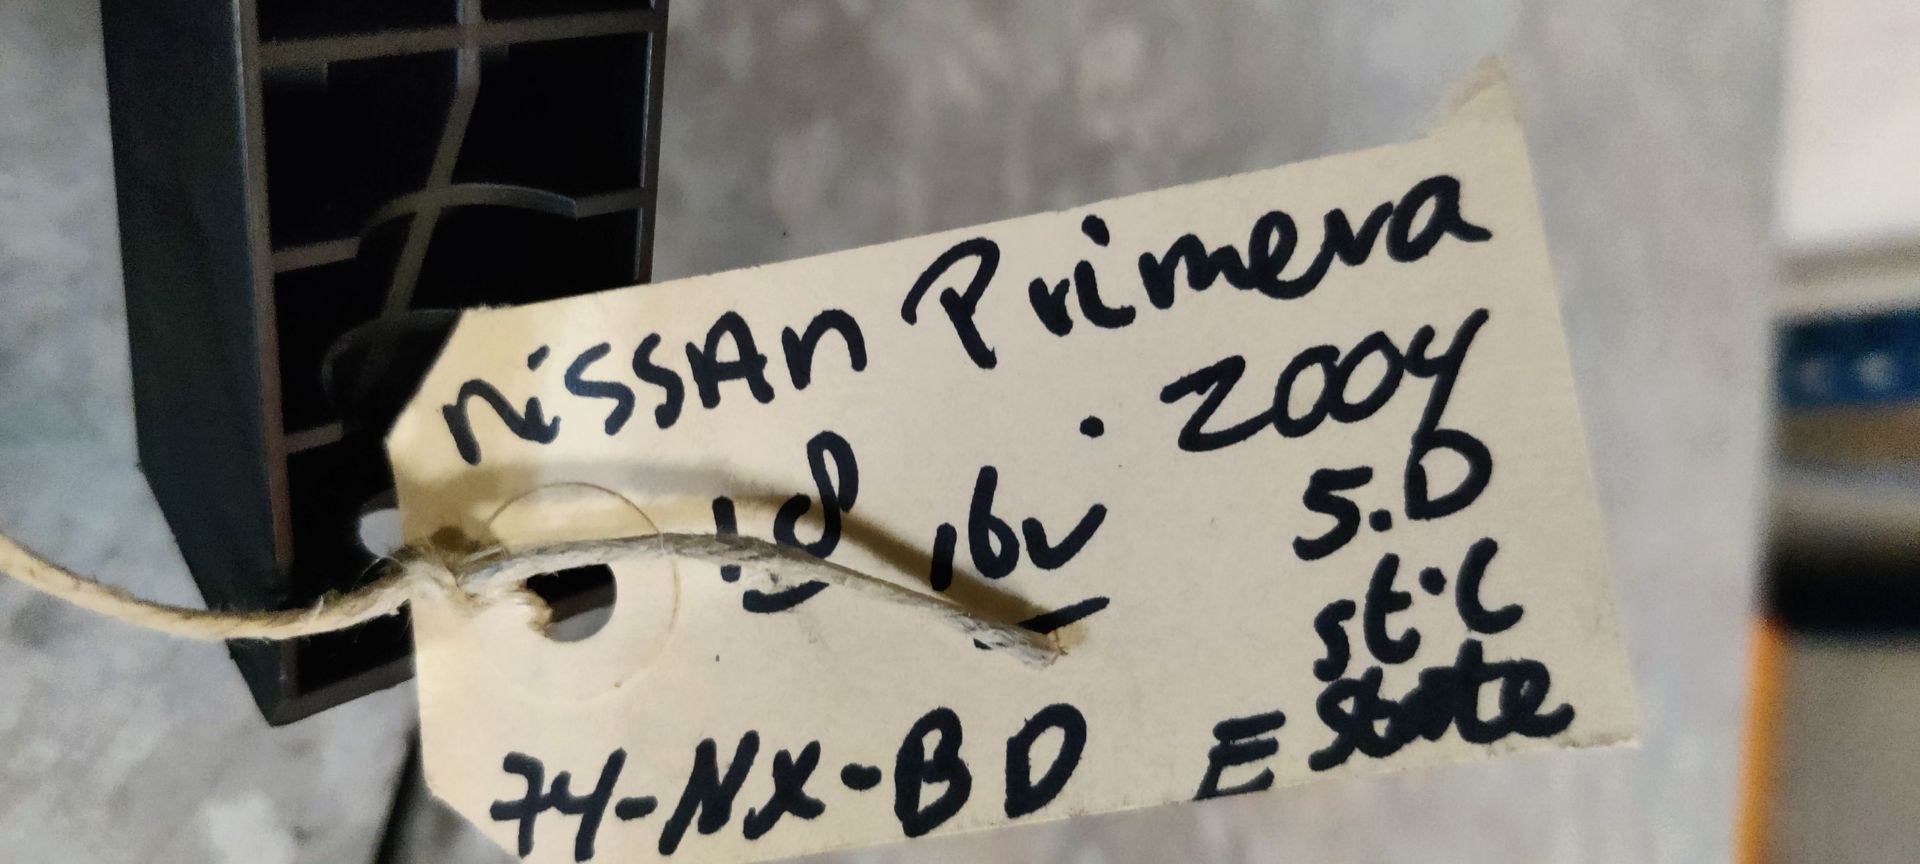 NissAn Primera
18 16v . 2004
5.D
st.c
74-NX-BD Estate